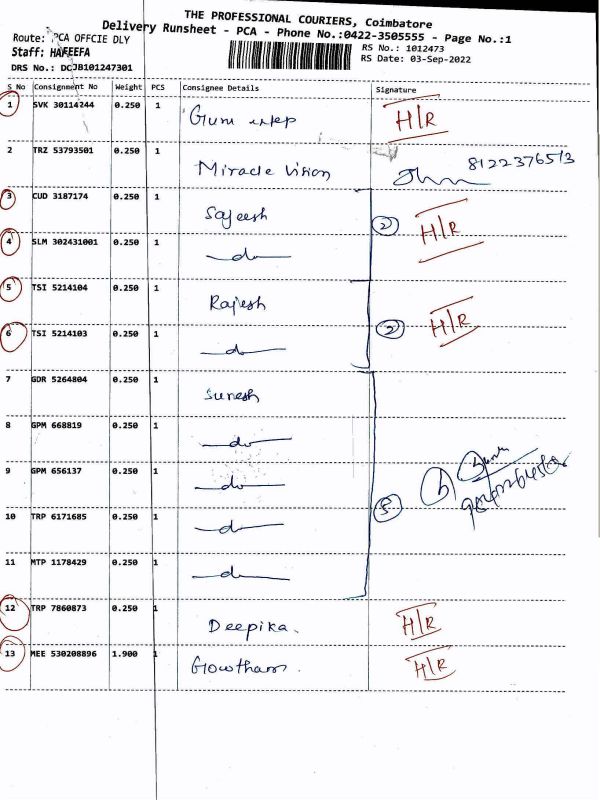 THE PROFESSIONAL COURIERS, Coimbatore
Delivery Runsheet - PCA - Phone No.:0422-3505555 - Page No.:1
Route: PCA OFFCIE DLY
RS No.: 1012473
Staff: HAFEEFA
RS Date: 03-Sep-2022
DRS No.: DCJB101247301
S No Consignment No Weight PCS Consignee Details Signature
1 SVK 30114244 0.250 1 H/R
2 TRZ 53793501 0.250 1 Miracle Vision 8122376513
3 CUD 3187174 0.250 1 Sajeesh 2 H/R
4 SLM 302431001 0.250 1 do
5 TSI 5214104 0.250 1 Rajesh
6 TSI 5214103 0.250 1 do 2 H/R
7 GDR 5264804 0.250 1 Suresh
8 GPM 668819 0.250 1 do
9 GPM 656137 0.250 1 do 5
10 TRP 6171685 0.250 1 do
11 MTP 1178429 0.250 1 do
12 TRP 7860873 0.250 1 Deepika. H/R
13 MEE 530208896 1.900 1 Gowtham. H/R